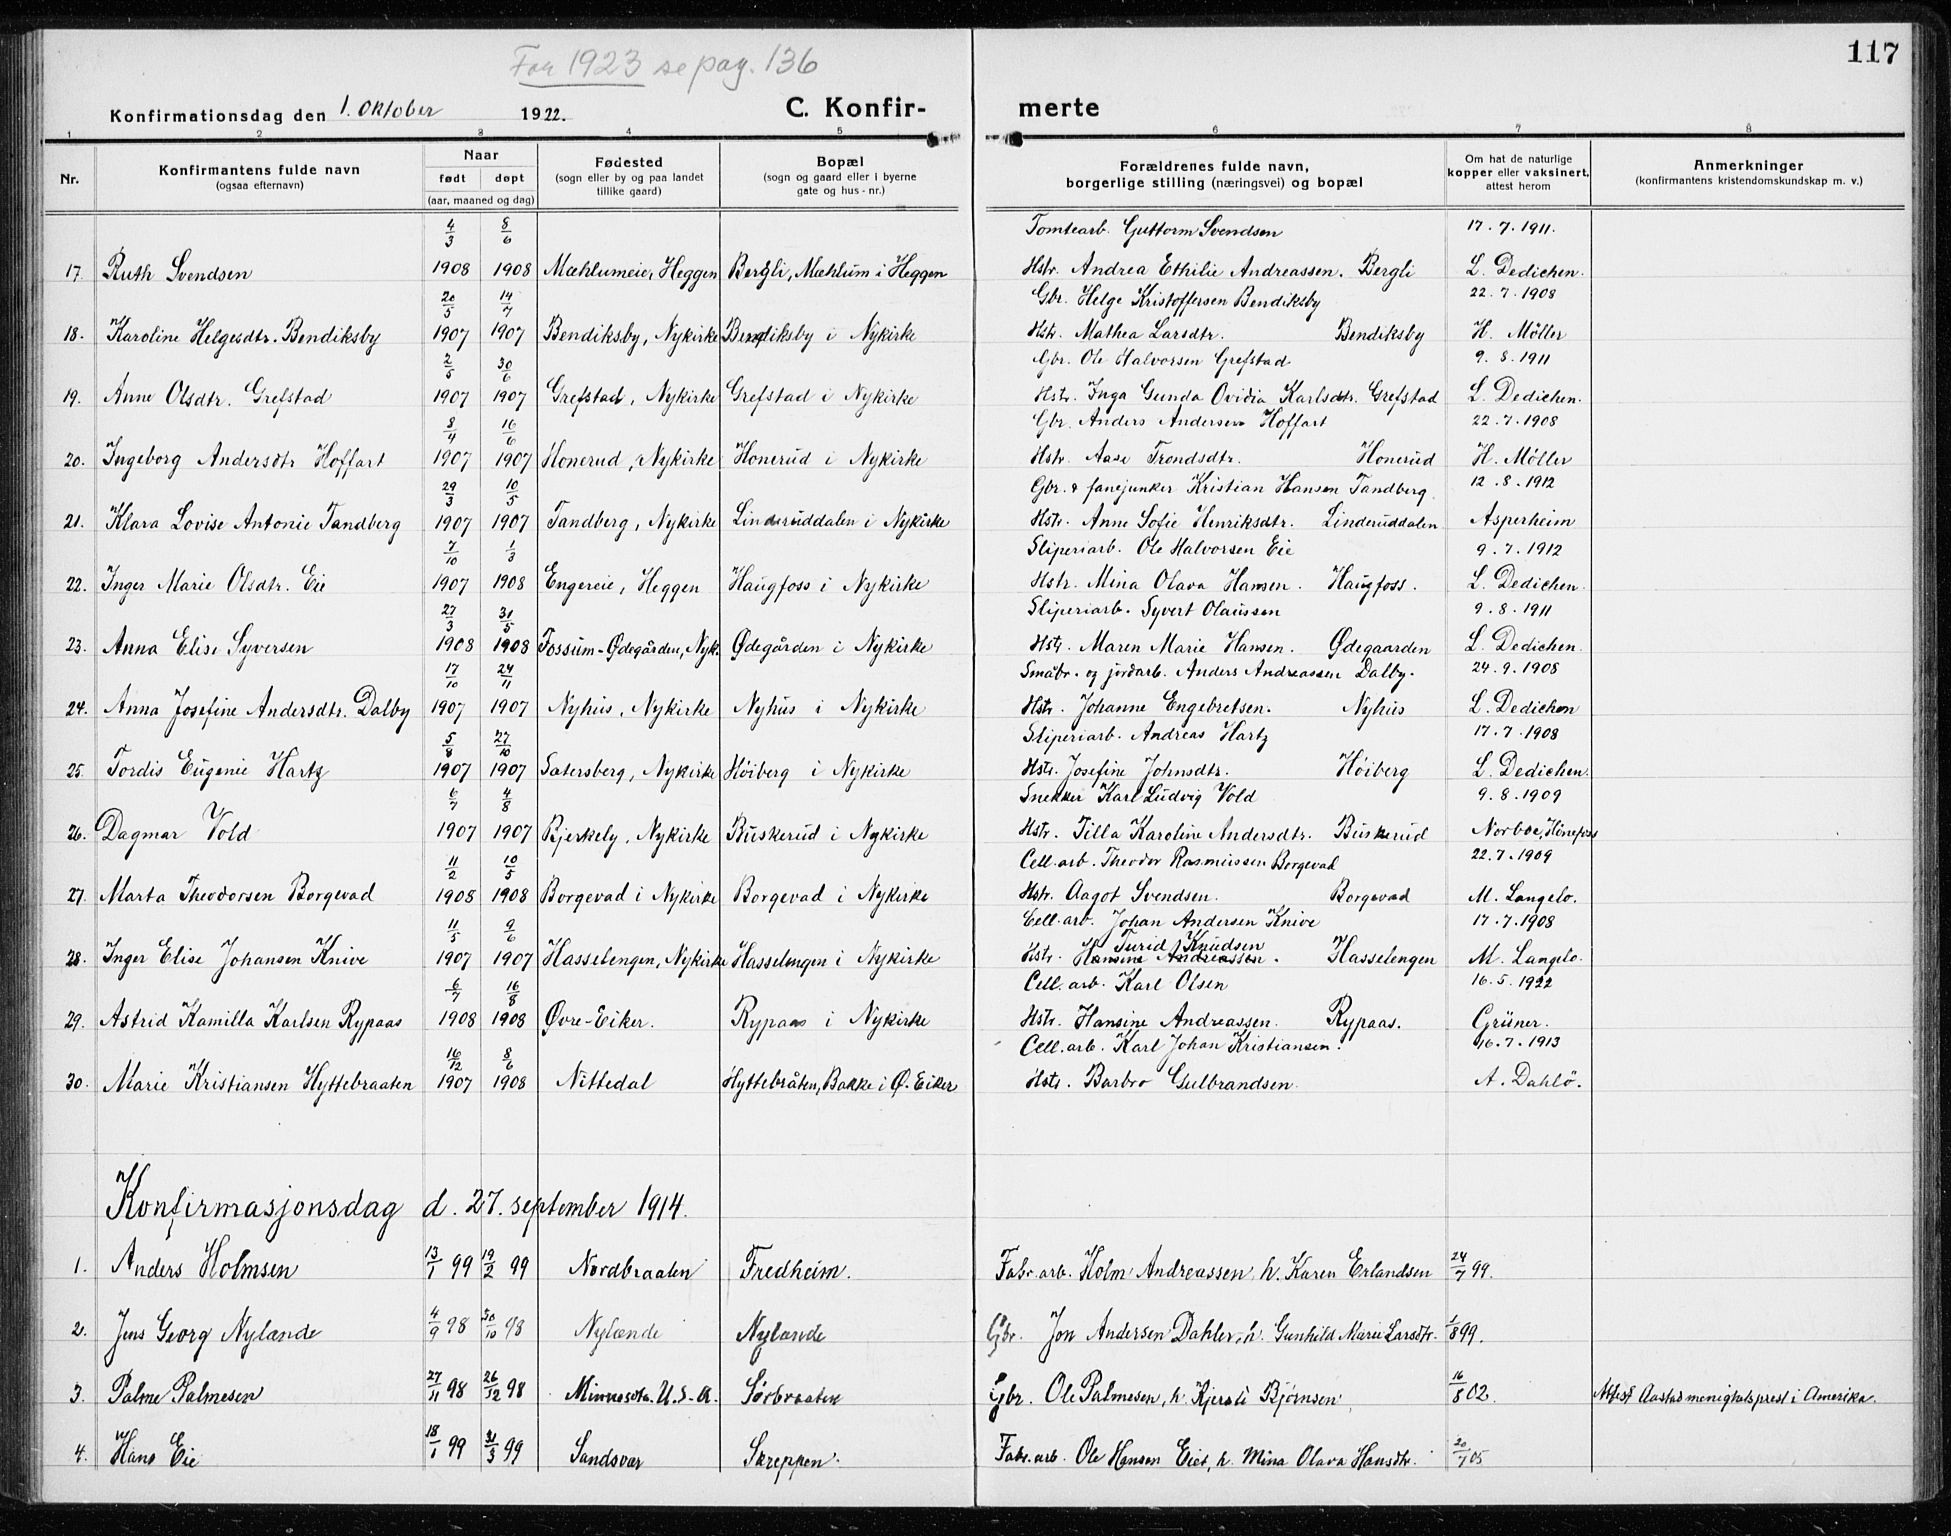 117
For 1923 se pag. 136
Konfirmationsdag den 1. Oktober 1922. C. Konfir- merte
1 2 3 4 5 6 7 8
Nr. Konfirmantens fulde navn (ogsaa efternavn) Naar født døpt (aar, maaned og dag) Fødested (sogn eller by og paa landet tillike gaard) Bopæl (sogn og gaard eller i byerne gate og hus-nr.) Forældrenes fulde navn, borgerlige stilling (næringsvei) og bopæl Om hat de naturlige kopper eller vaksinert, attest herom Anmerkninger (konfirmantens kristendomskundskap m. v.)
4/3 8/6 Tomtearb. Guttorm Svendsen 17.7.1911.
17. Ruth Svendsen 1908 1908 Mæhlumeie, Heggen Bergli, Mæhlum i Heggen Hstr. Andrea Ethilie Andreassen. Bergli L. Dedichen.
20/5 14/7 Gbr. Helge Kristoffersen Bendiksby 22.7.1908
18. Karoline Helgesdtr. Bendiksby 1907 1907 Bendiksby, Nykirke Bendiksby i Nykirke Hstr. Mathea Larsdtr. Bendiksby H. Möller
2/5 30/6 Gbr. Ole Halvorsen Grefstad 9.8.1911
19. Anne Olsdtr. Grefstad 1907 1907 Grefstad, Nykirke Grefstad i Nykirke Hstr. Inga Gunda Ovidia Karlsdtr. Grefstad L. Dedichen.
8/4 16/6 Gbr. Anders Andersen Hoffart 22.7.1908
20. Ingeborg Andersdtr Hoffart 1907 1907 Honerud, Nykirke Honerud i Nykirke Hstr. Aase Trondsdtr. Honerud H. Möller
29/3 10/5 Gbr. & fanejunker Kristian Hansen Tandberg 12.8.1912
21. Klara Lovise Antonie Tandberg 1907 1907 Tandberg, Nykirke Linderuddalen i Nykirke Hstr. Anne Sofie Henriksdtr. Linderuddalen Asperheim
7/10 1/3 Sliperiarb. Ole Halvorsen Eie 9.7.1912
22. Inger Marie Olsdtr. Eie 1907 1908 Engereie, Heggen Haugfoss i Nykirke Hstr. Mina Olava Hansen. Haugfoss. L. Dedichen.
27/3 31/5 Sliperiarb. Syvert Olaussen 9.8.1911
23. Anna Elise Syversen 1908 1908 Fossum-Ødegården, Nyk. Ødegården i Nykirke Hstr. Maren Marie Hansen. Ødegaarden L. Dedichen.
17/10 24/11 Småbr. og jordarb. Anders Andreassen Dalby. 24.9.1908
24. Anna Josefine Andersdtr. Dalby 1907 1907 Nyhus, Nykirke Nyhus i Nykirke Hstr. Johanne Engebretsen. Nyhus L. Dedichen
5/8 27/10 Sliperiarb. Andreas Hartz 17.7.1908
25. Tordis Eugenie Hartz 1907 1907 Satersberg, Nykirke Höiberg i Nykirke Hstr. Josefine Johnsdtr. Höiberg L. Dedichen.
6/7 4/8 Snekker Karl Ludvig Vold 9.8.1909
26. Dagmar Vold 1907 1907 Bjerkely, Nykirke Buskerud i Nykirke Hstr. Tilla Karoline Andersdtr. Buskerud Norboe, Hönefoss
11/2 10/5 Cell.arb. Theodor Rasmussen Borgevad 22.7.1909
27. Marta Theodorsen Borgevad 1908 1908 Borgevad i Nykirke Borgevad i Nykirke Hstr. Aagot Svendsen. Borgevad M. Langelo.
11/5 9/6 Cell.arb. Johan Andersen Knive 17.7.1908
Turid Knudsen
28. Inger Elise Johansen Knive 1907 1907 Hasselengen, Nykirke Hasselengen i Nykirke Hstr. Hansine Andreassen. Hasselengen M. Langelo.
6/7 16/8 Cell.arb. Karl Olsen 16.5.1922
29. Astrid Kamilla Karlsen Rypaas 1908 1908 Øvre-Eiker. Rypaas i Nykirke Hstr. Hansine Andreassen. Rypaas. Grüner.
16/12 8/6 Cell.arb. Karl Johan Kristiansen. 16.7.1913
30. Marie Kristiansen Hyttebraaten 1907 1908 Nittedal Hyttebråten, Bakke i Ø. Eiker Hstr. Barbro Gulbrandsen. A. Dahlö.
Konfirmasjonsdag d. 27. september 1914.
1. Anders Holmsen 13/1 99 19/2 99 Nordbraaten Fredheim. Fabr.arb. Holm Andreassen, h. Karen Erlandsen 24/7 99.
2. Jens Georg Nylænde 4/9 98 30/10 98 Nylænde Nylænde Gbr. Jon Andersen Dahler, h. Gunhild Marie Larsdtr. 1/8 99.
3. Palme Palmesen 27/11 98 26/12 98 Minnesota. U.S.A. Sørbraaten Gbr. Ole Palmesen, h. Kjersti Bjørnsen 16/8 02. Attest Aastad menighetsprest i Amerika.
4. Hans Eie 18/1 99 31/3 99 Sandsvær Skreppen. Fabr.arb. Ole Hansen Eiet, h. Mina Olava Hansdtr. 20/7 05